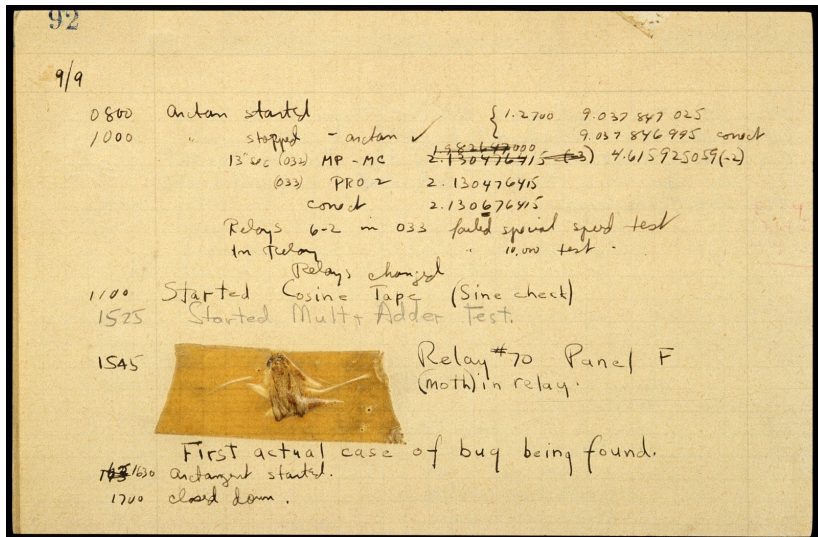 92
9/9
0800 Arctan started { 1.2700 9.037 847 025
1000 " stopped - arctan ✓ 9.037 846 995 correct
13"sec (032) MP - MC 2.130476415 (-3) 4.615925059(-2)
(033) PRO 2 2.130476415
correct 2.130676415
Relays 6-2 in 033 failed special speed test
In Relay " 10,000 test .
Relays changed
1100 Started Cosine Tape (Sine check)
1525 Started Mult + Adder Test.
1545 Relay #70 Panel F
(moth) in relay.
First actual case of bug being found.
1630 arctangent started.
1700 closed down .